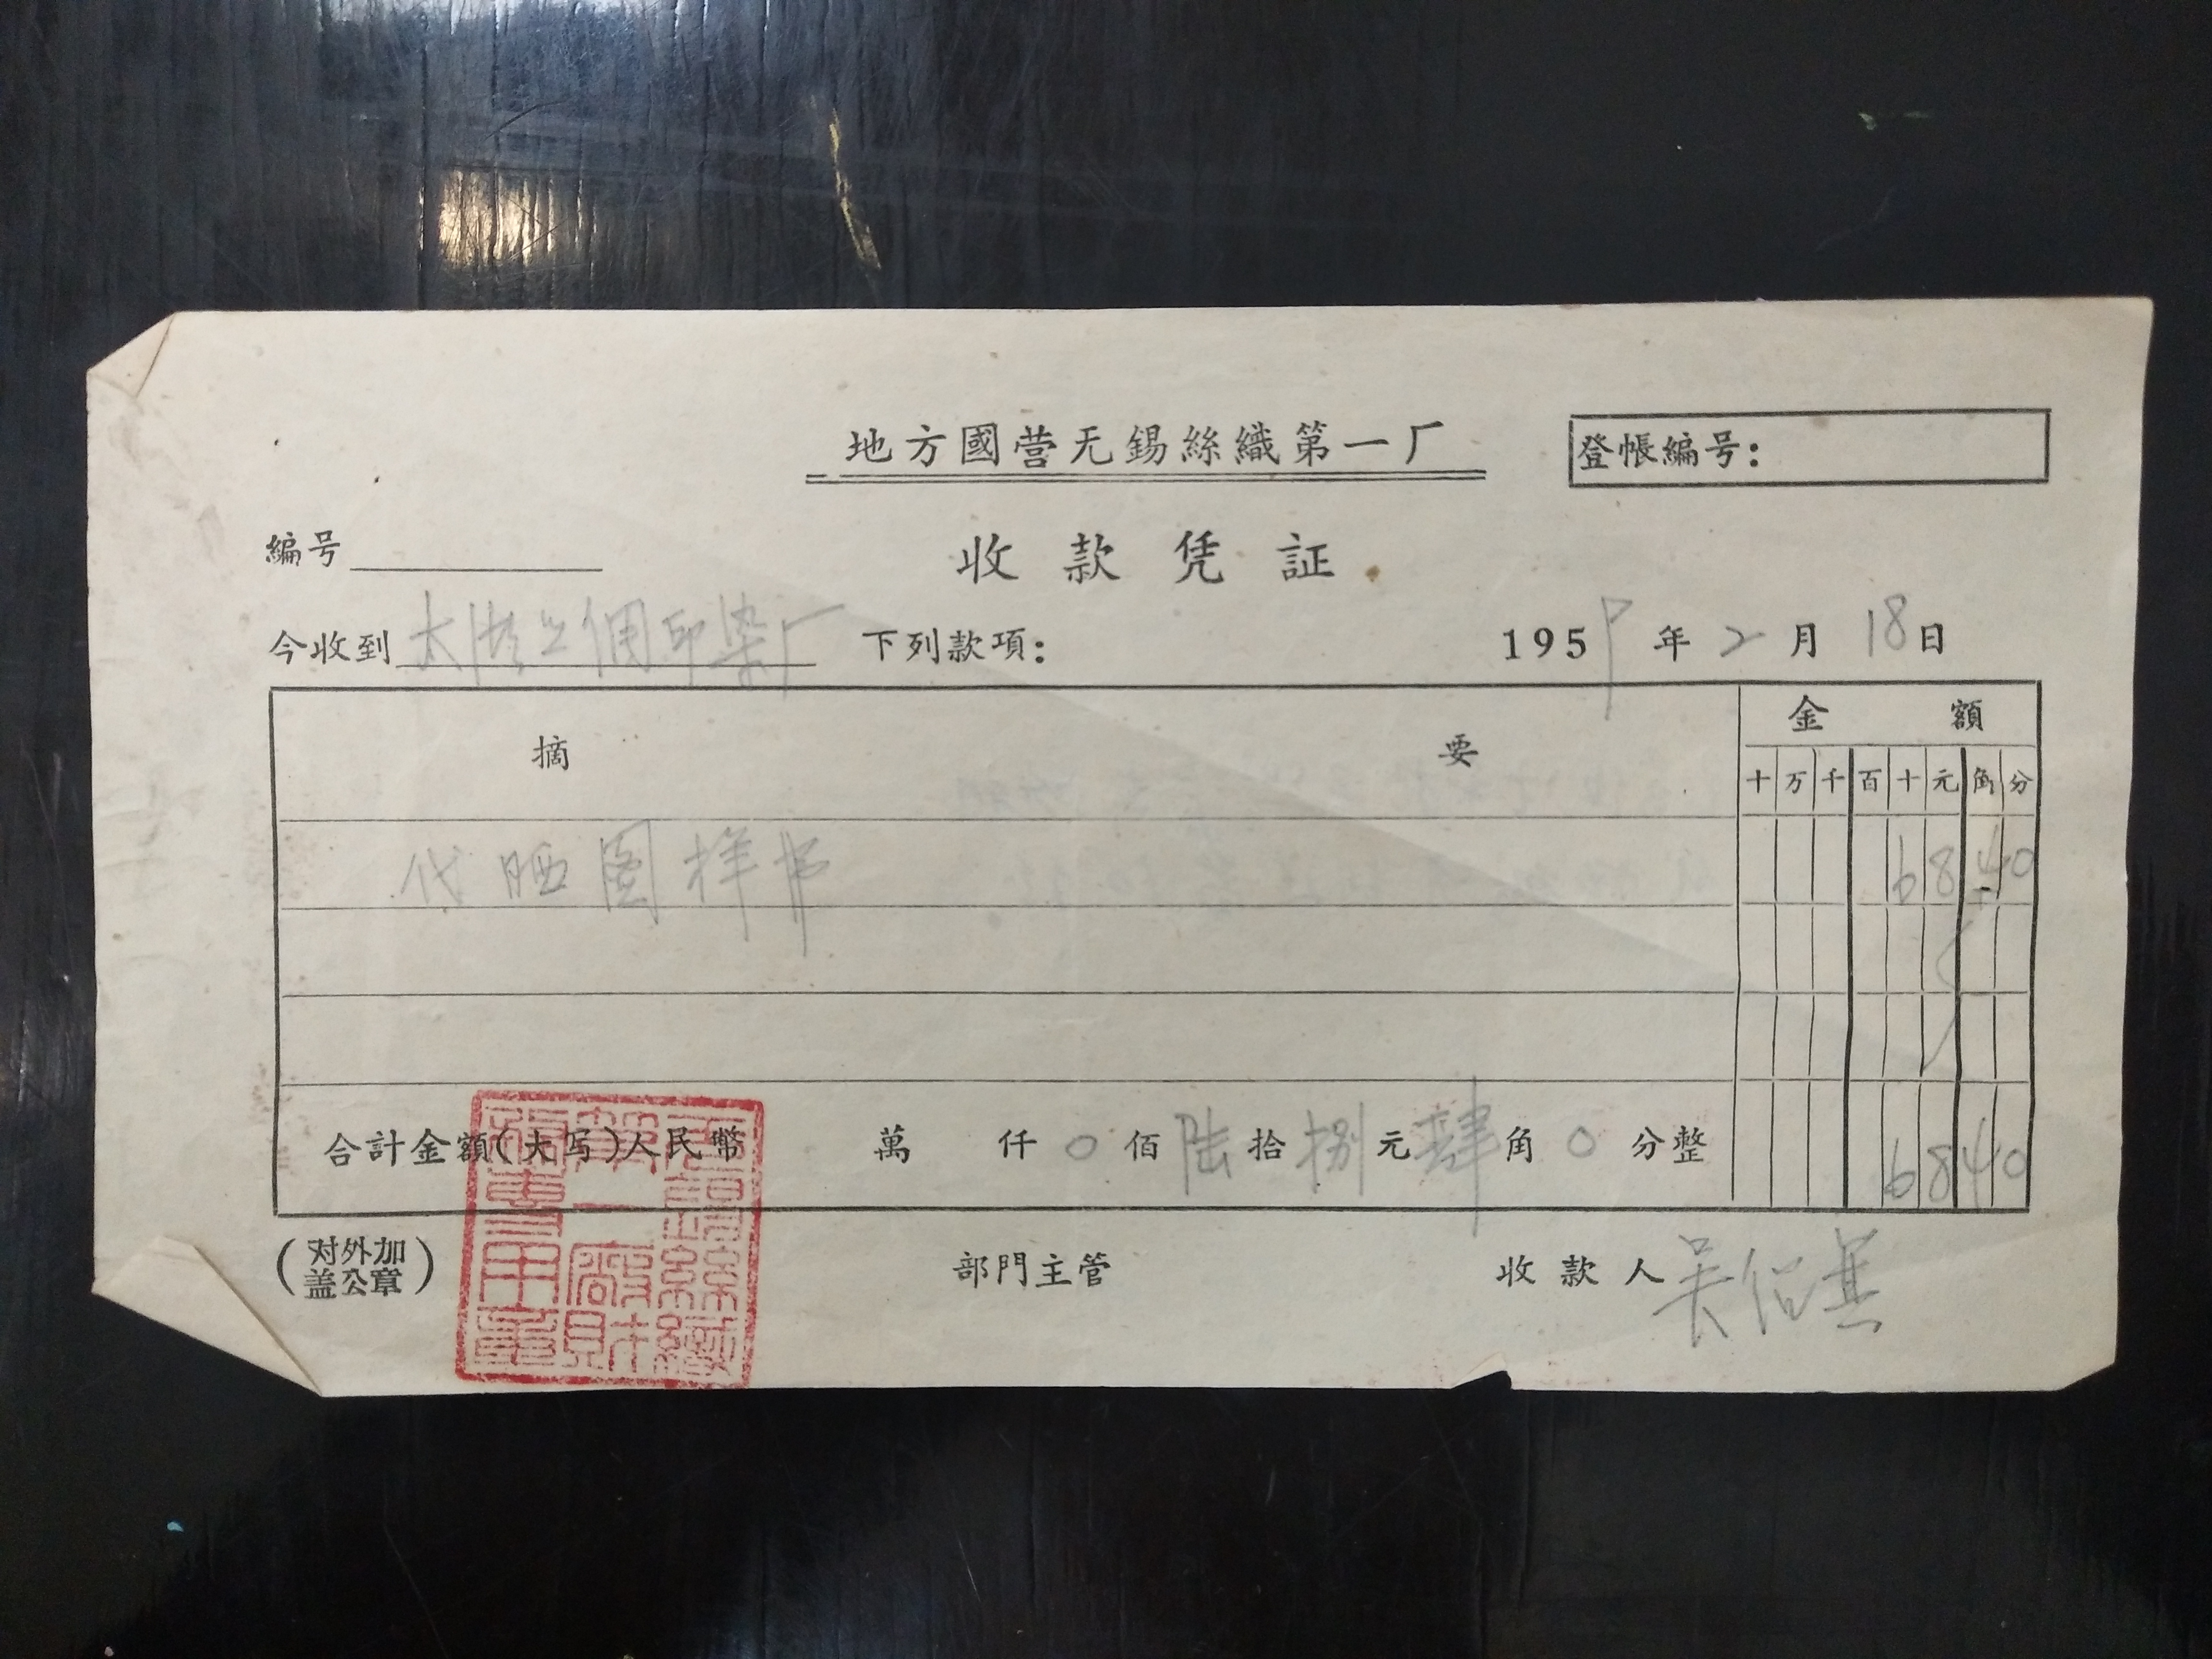 地方國营无錫絲織第一厂
登帳編号：
編号
收款凭証
今收到 太湖 印染厂 下列款項：
1959年2月18日
摘要 金額
十万千百十元角分
代晒图样费 6840
合計金額(大写)人民幣 萬 仟0佰陆拾捌元肆角0分整 6840
(对外加盖公章) 部門主管 收款人 吴
无錫絲織
第一廠財
務專用章